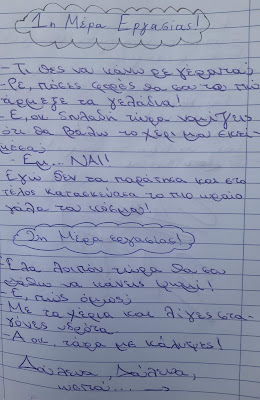 1η Μέρα Εργασίας!
-Τι θες να κάνω ρε γέροντα;
-Ρε, πόσες φορές θα σου το πω
άρμεξε τα γελάδια!
-Ε, οκ δηλαδή τώρα νομίζεις
ότι θα βάλω το χέρι μου εκεί
μέσα;
-Εμ... ΝΑΙ!
Εγώ δεν τα παράτησα και στο
τέλος κατασκεύασα το πιο ωραίο
γάλα του κόσμου!
2η Μέρα εργασίας!
-Έλα λοιπόν τώρα θα σου
μάθω να κάνεις ψωμί!
-Ε, πώς όμως;
-Με τα χέρια και λίγες στα-
γόνες ιδρώτα.
-Α οκ, τώρα με κάλυψες!
Δούλευα, δούλευα,
ώσπου... →